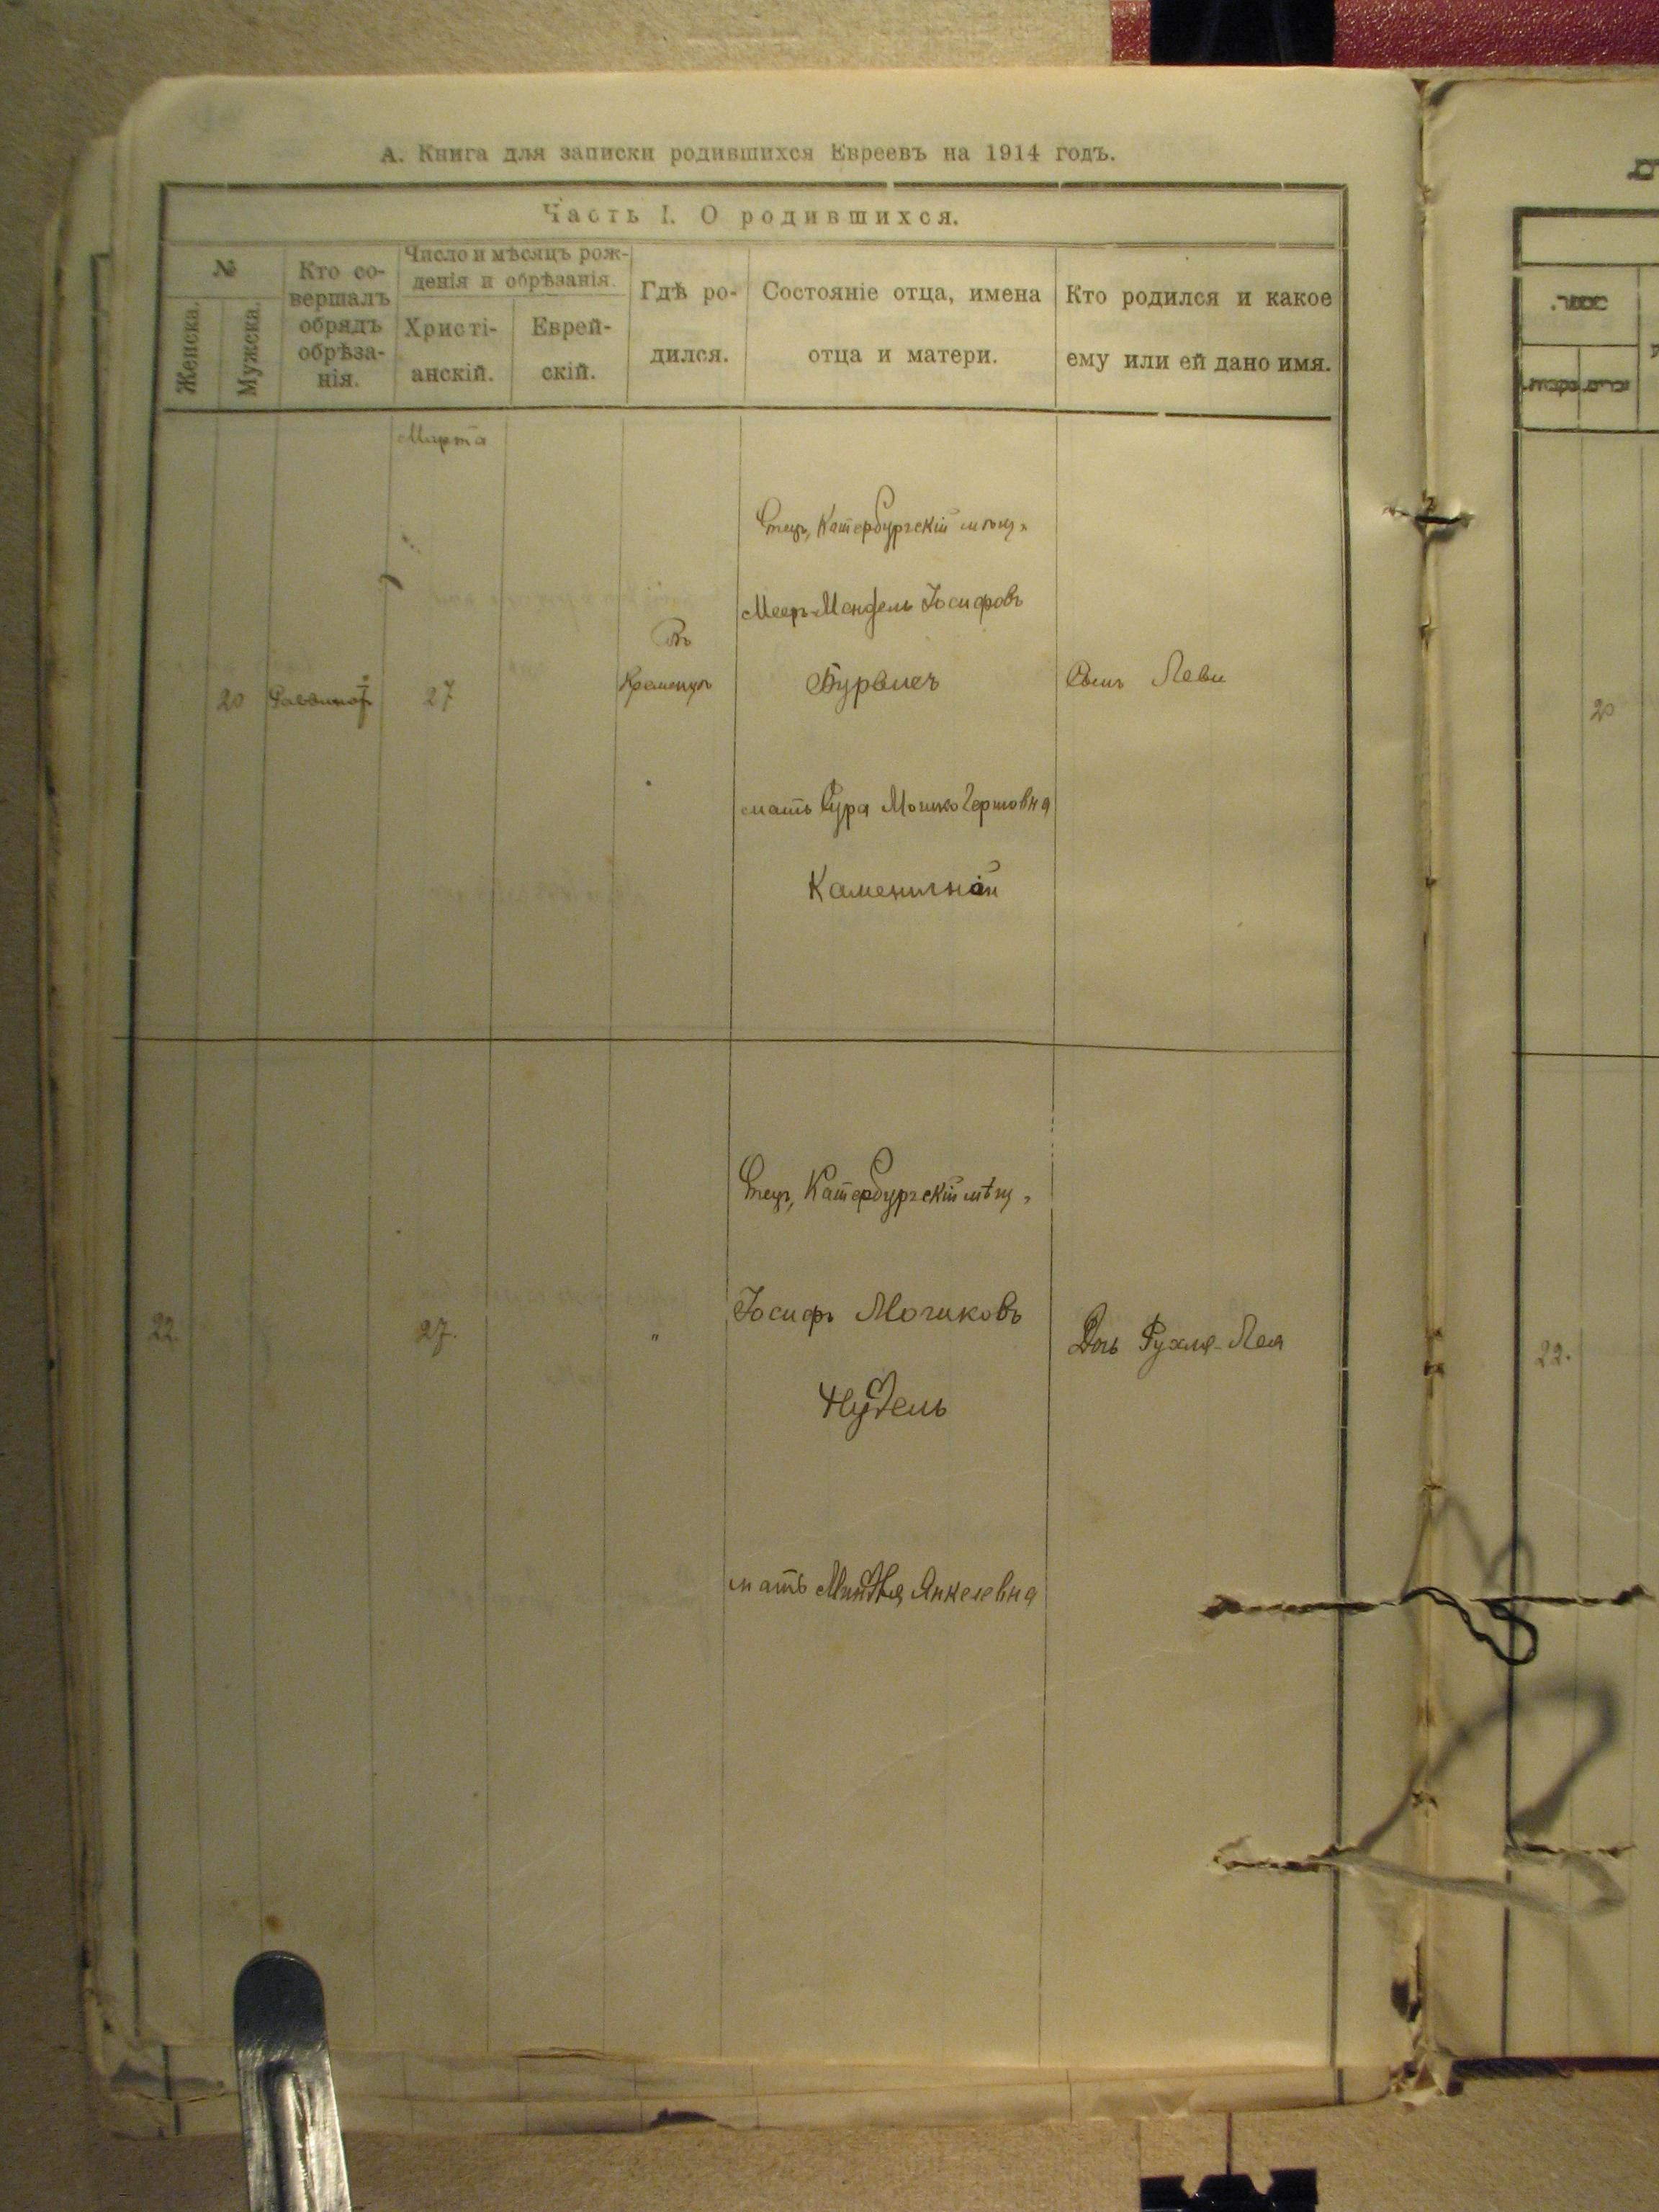 А. Книга для записки родившихся Евреевъ на 1914 годъ.
Часть I. О родившихся.
№
Женска.
Мужска.
Кто со-
вершалъ
обрядъ
обрѣза-
нія.
Число и мѣсяцъ рож-
денія и обрѣзанія.
Христі-
анскій.
Еврей-
скій.
Гдѣ ро-
дился.
Состояніе отца, имена
отца и матери.
Кто родился и какое
ему или ей дано имя.
Марта
20
27
Въ
Кременцѣ
Отецъ, Катербургскій мѣщ.
Мееръ-Мендель Іосифовъ
Бурвичъ
мать Сура Мошко Гершовна
Каменичній
Сынъ Леви
22.
27.
"
Отецъ, Катербургскій мѣщ.
Іосифъ Мочиковъ
Нудель
мать Миндля Янкелевна
Дочь Рухля-Лея
20
22.